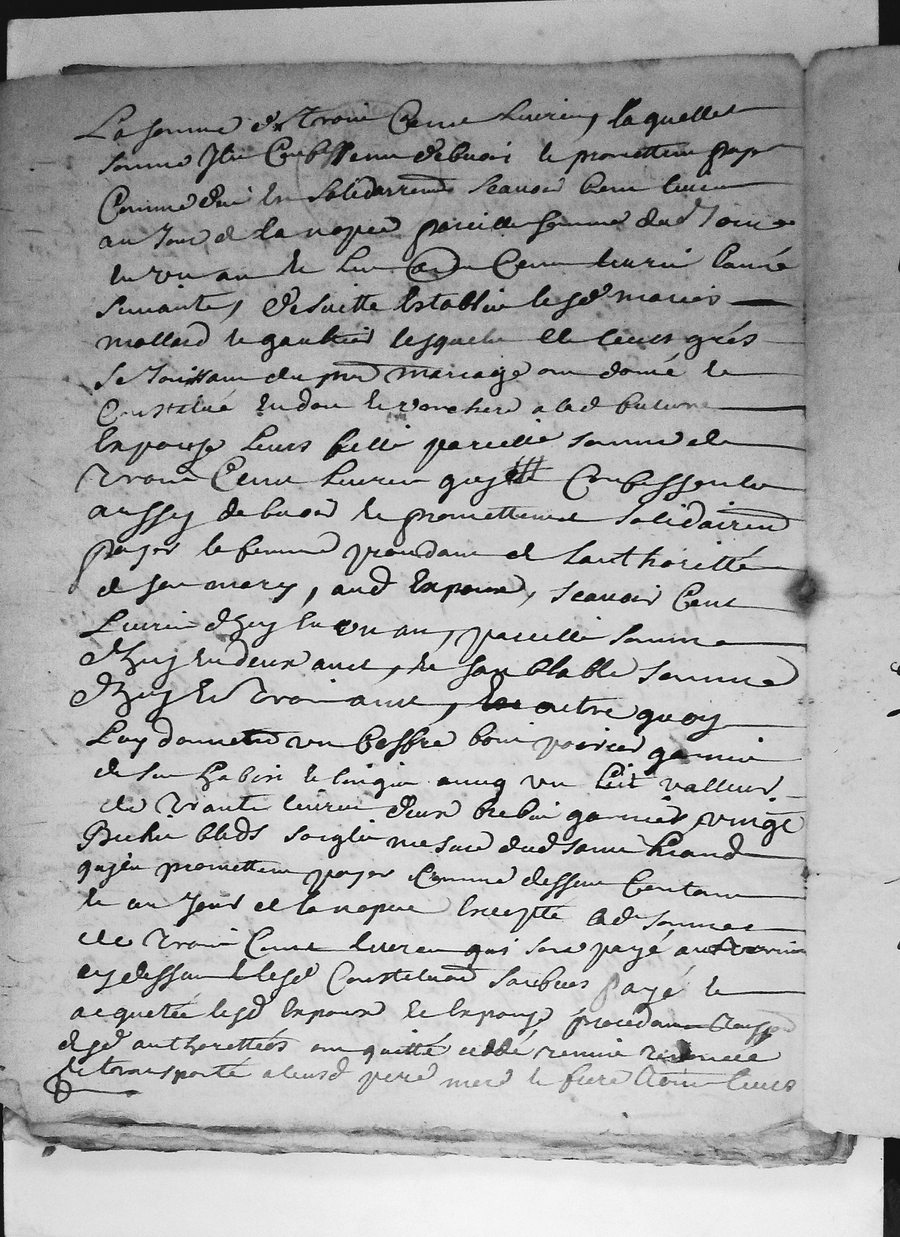 La somme de Trois Cent livres, laquelle
somme Ils Confessent debvoir et promettent payer
Comme dit est solidairemt scavoir Cent livres
au Jour de la nopce pareille somme dud Jour
en un an et les Cent livres l'année
suivante, de suitte establis lesd maries
mallard et gaultier lesquels de leurs grés
se Jouissant du pnt mariage ont doné et
Constitué en don et verchere a lad future
Expouze leurs fille pareille somme de
Trois Cent livres quils Confessent
aussy debvoir et promettent solidairemt
payer la femme procedant de l'authoritté
de son mary, aud Expoux, scavoir Cent
Livres d'huy en un an, pareille somme
d'huy en deux ans, et semblable somme
d'huy et Trois ans, En outre quoy
Luy donnent un Coffre bois poirier garnie
de ses habis et lingis avecq un Lict valleur
de Trante livres deux brebis garnies, vingt
Bichis bleds soiglie mesure dud
quils promettent payer Comme dessus
et au Jour de la nopce Excepte lad somme
de Trois Cent livres qui sera payé au
cy dessus lesd Constituans payé et
acquetée lesd Expoux et Expouze procedans
desd authorittées ont quitté ceddé remis renoncé
et transporté a leursd pere mere et frere leurs